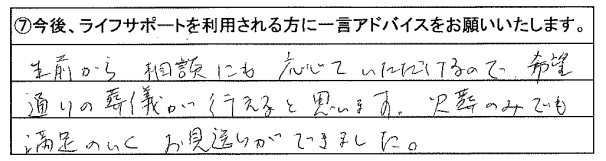 ⑦今後、ライフサポートを利用される方に一言アドバイスをお願いいたします。
生前から 相談にも 応じて いただけるので 希望
通りの葬儀が行えると思います。火葬のみでも
満足のいく お見送りができました。